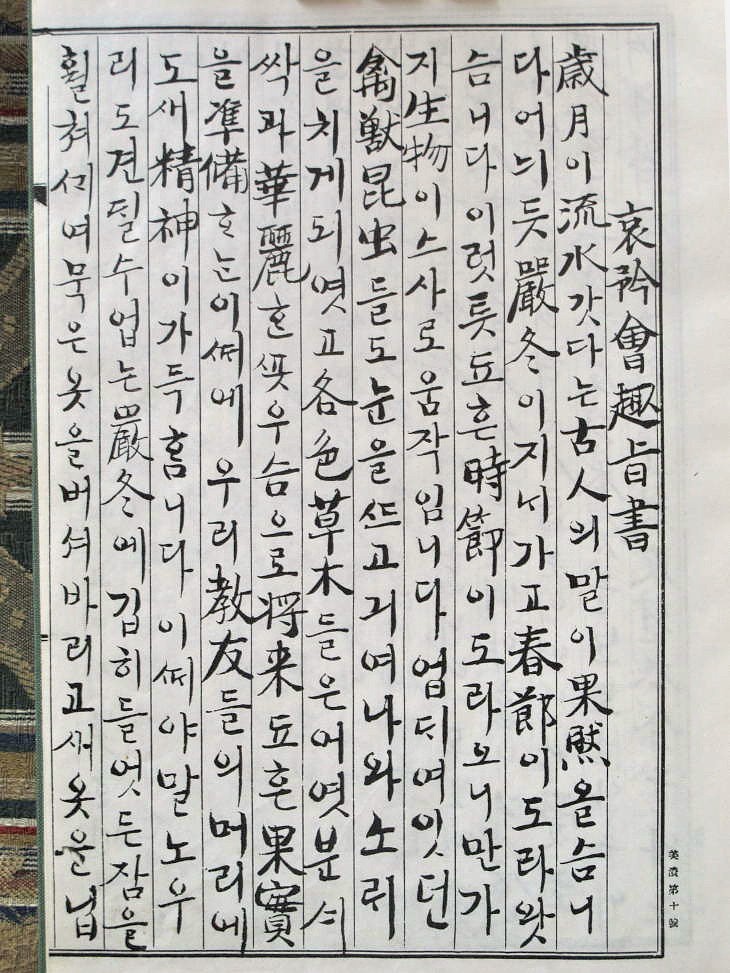 哀矜會趣旨書
歲月이流水갓다는古人의말이果然올슴니
다어늬듯嚴冬이지내가고春節이도라왓
슴니다이럿틋됴흔時節이도라오니만가
지生物이스사로움작임니다업대여잇던
禽獸昆虫들도눈을ᄯᅳ고긔여나와소래
을치게되엿고各色草木들은어엿분싀
싹과華麗ᄒᆞᆫᄭᅩᆺ우슴으로將来됴흔果實
을準備ᄒᆞᄂᆞᆫ이ᄯᅢ에우리敎友들의머리에
도새精神이가득홈니다이ᄯᅢ야말노우
리도견딜수업는嚴冬에깁히들엇든잠을
훨쳐ᄭᆡ여묵은옷을버셔바리고새옷을닙
美濃第十號